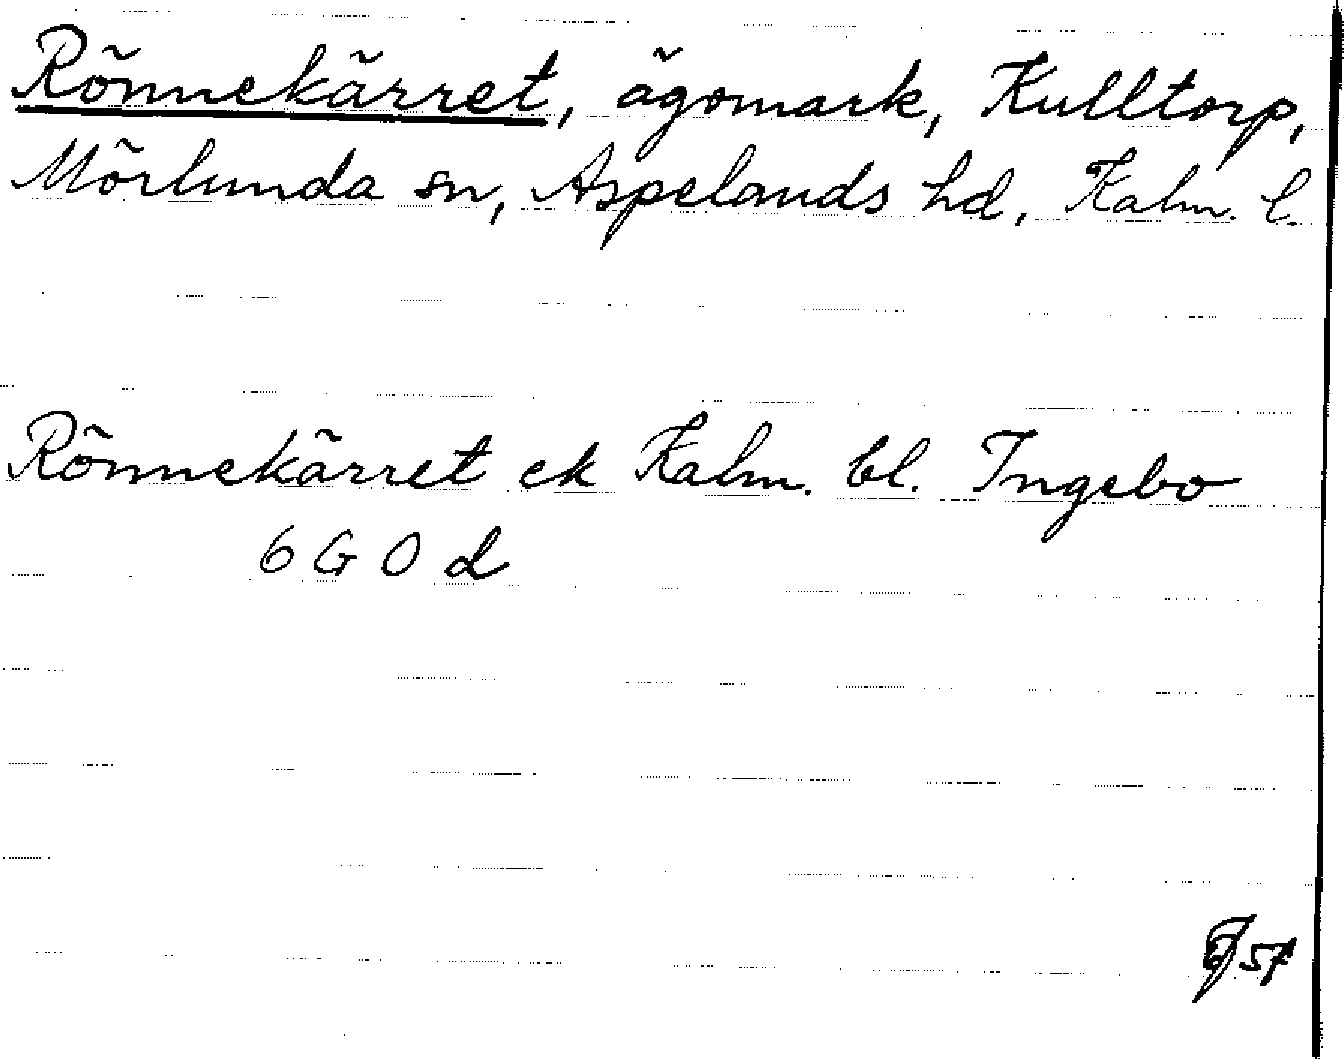 Rönnekärret, ägomark, Kulltorp,
Mörlunda sn, Aspelands hd, Kalm. l.
Rönnekärret ek Kalm. bl. Ingebo
6 G 0 d
57